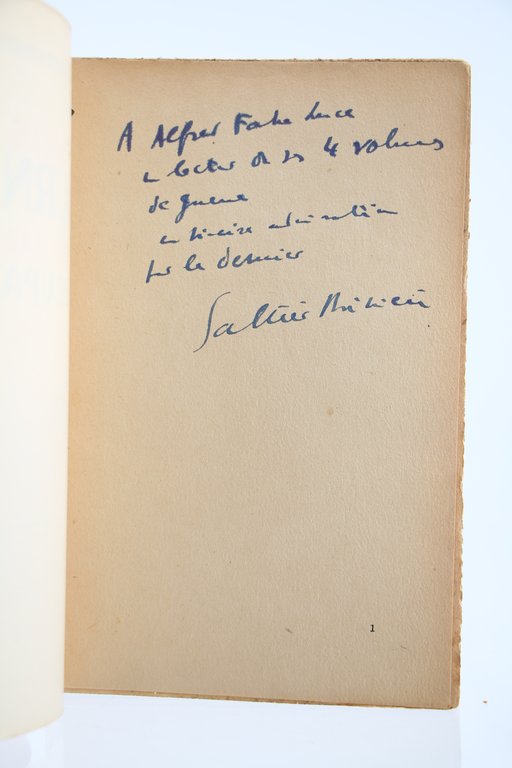 A Alfred Fabre Luce
un lecteur de ses 4 volumes
de guerre
en sincère admiration
pour le dernier
Galtier Boissière
1